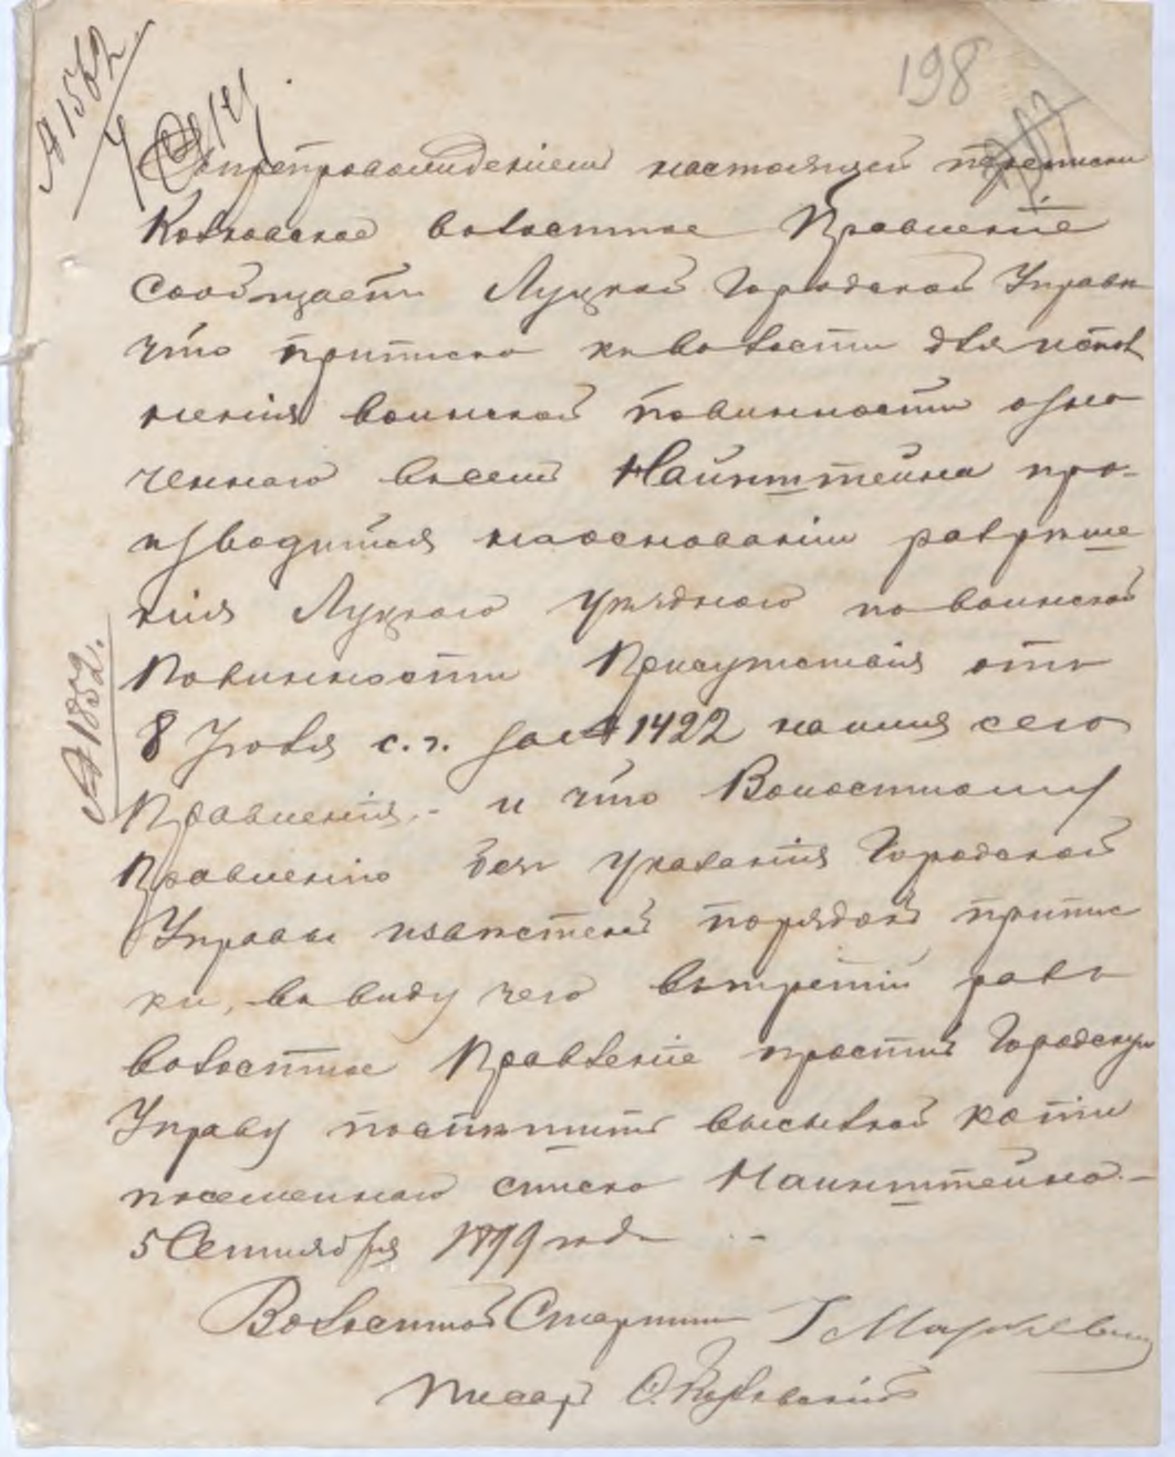 198
№ 1562
Съ препровожденіемъ настоящей переписки
Ковельское волостное Правленіе
Сообщаетъ Луцкой Городской Управѣ
что приписка къ волости для испол
ненія воинской повинности озна
ченнаго въ семъ Найнштейна про-
изводится на основаніи разрѣше
нія Луцкаго уѣзднаго по воинской
Повинности Присутствія отъ
8 Іюля с. г. за № 1422 на имя сего
Правленія.- и что Волостному
Правленію безъ указанія Городской
Управы извѣстенъ порядокъ припис
ки, въ виду чего въ третій разъ
волостное Правленіе проситъ Городскую
Управу поспѣшить высылкой копіи
посемейнаго списка Наинштейна.-
5 Сентября 1879 года
Волостной Старшина Г Маркевичъ
Писарь О.
№ 1852.